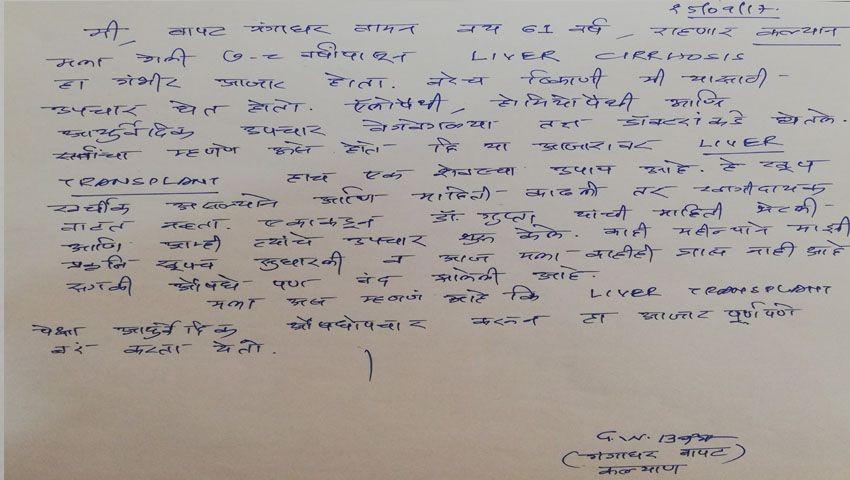 १५/०९/१७.
मी, बापट गंगाधर वामन वय ६१ वर्ष, राहणार कल्याण
मला गेली ७-८ वर्षापासून LIVER CIRRHOSIS
हा गंभीर आजार होता. बरेच ठिकाणी मी यासाठी -
उपचार घेत होतो. एलोपॅथी, होमियोपॅथी आणि
आयुर्वेदिक उपचार वेगवेगळ्या तज्ञ डॉक्टरांकडे घेतले.
सर्वांचा म्हणणे असे होते कि या आजारावर LIVER
TRANSPLANT हाच एक शेवटचा उपाय आहे. हे खूप
खर्चीक असल्याने आणि माहिती काढली तर खात्रीदायक
वाटत नव्हता. एकाकडून डॉ. गुप्ता यांची माहिती भेटली -
आणि आम्ही त्यांचे उपचार सुरू केले. काही महीन्याने माझी
प्रकृति खूपच सुधारली व आज मला काहीही त्रास नाही आहे
सगळी औषधे पण बंद झालेली आहे.
मला असं म्हणणं आहे कि LIVER TRANSPLANT
पेक्षा आयुर्वेदिक औषधोपचार करून हा आजार पूर्णपणे
बरं करता येतो.
G.W. Bapat
(गंगाधर बापट)
कल्याण